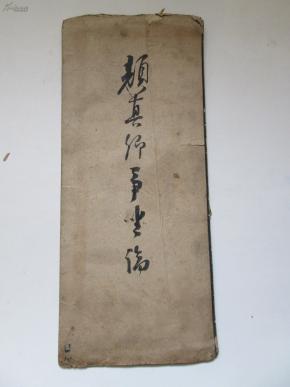 顏真卿爭坐稿